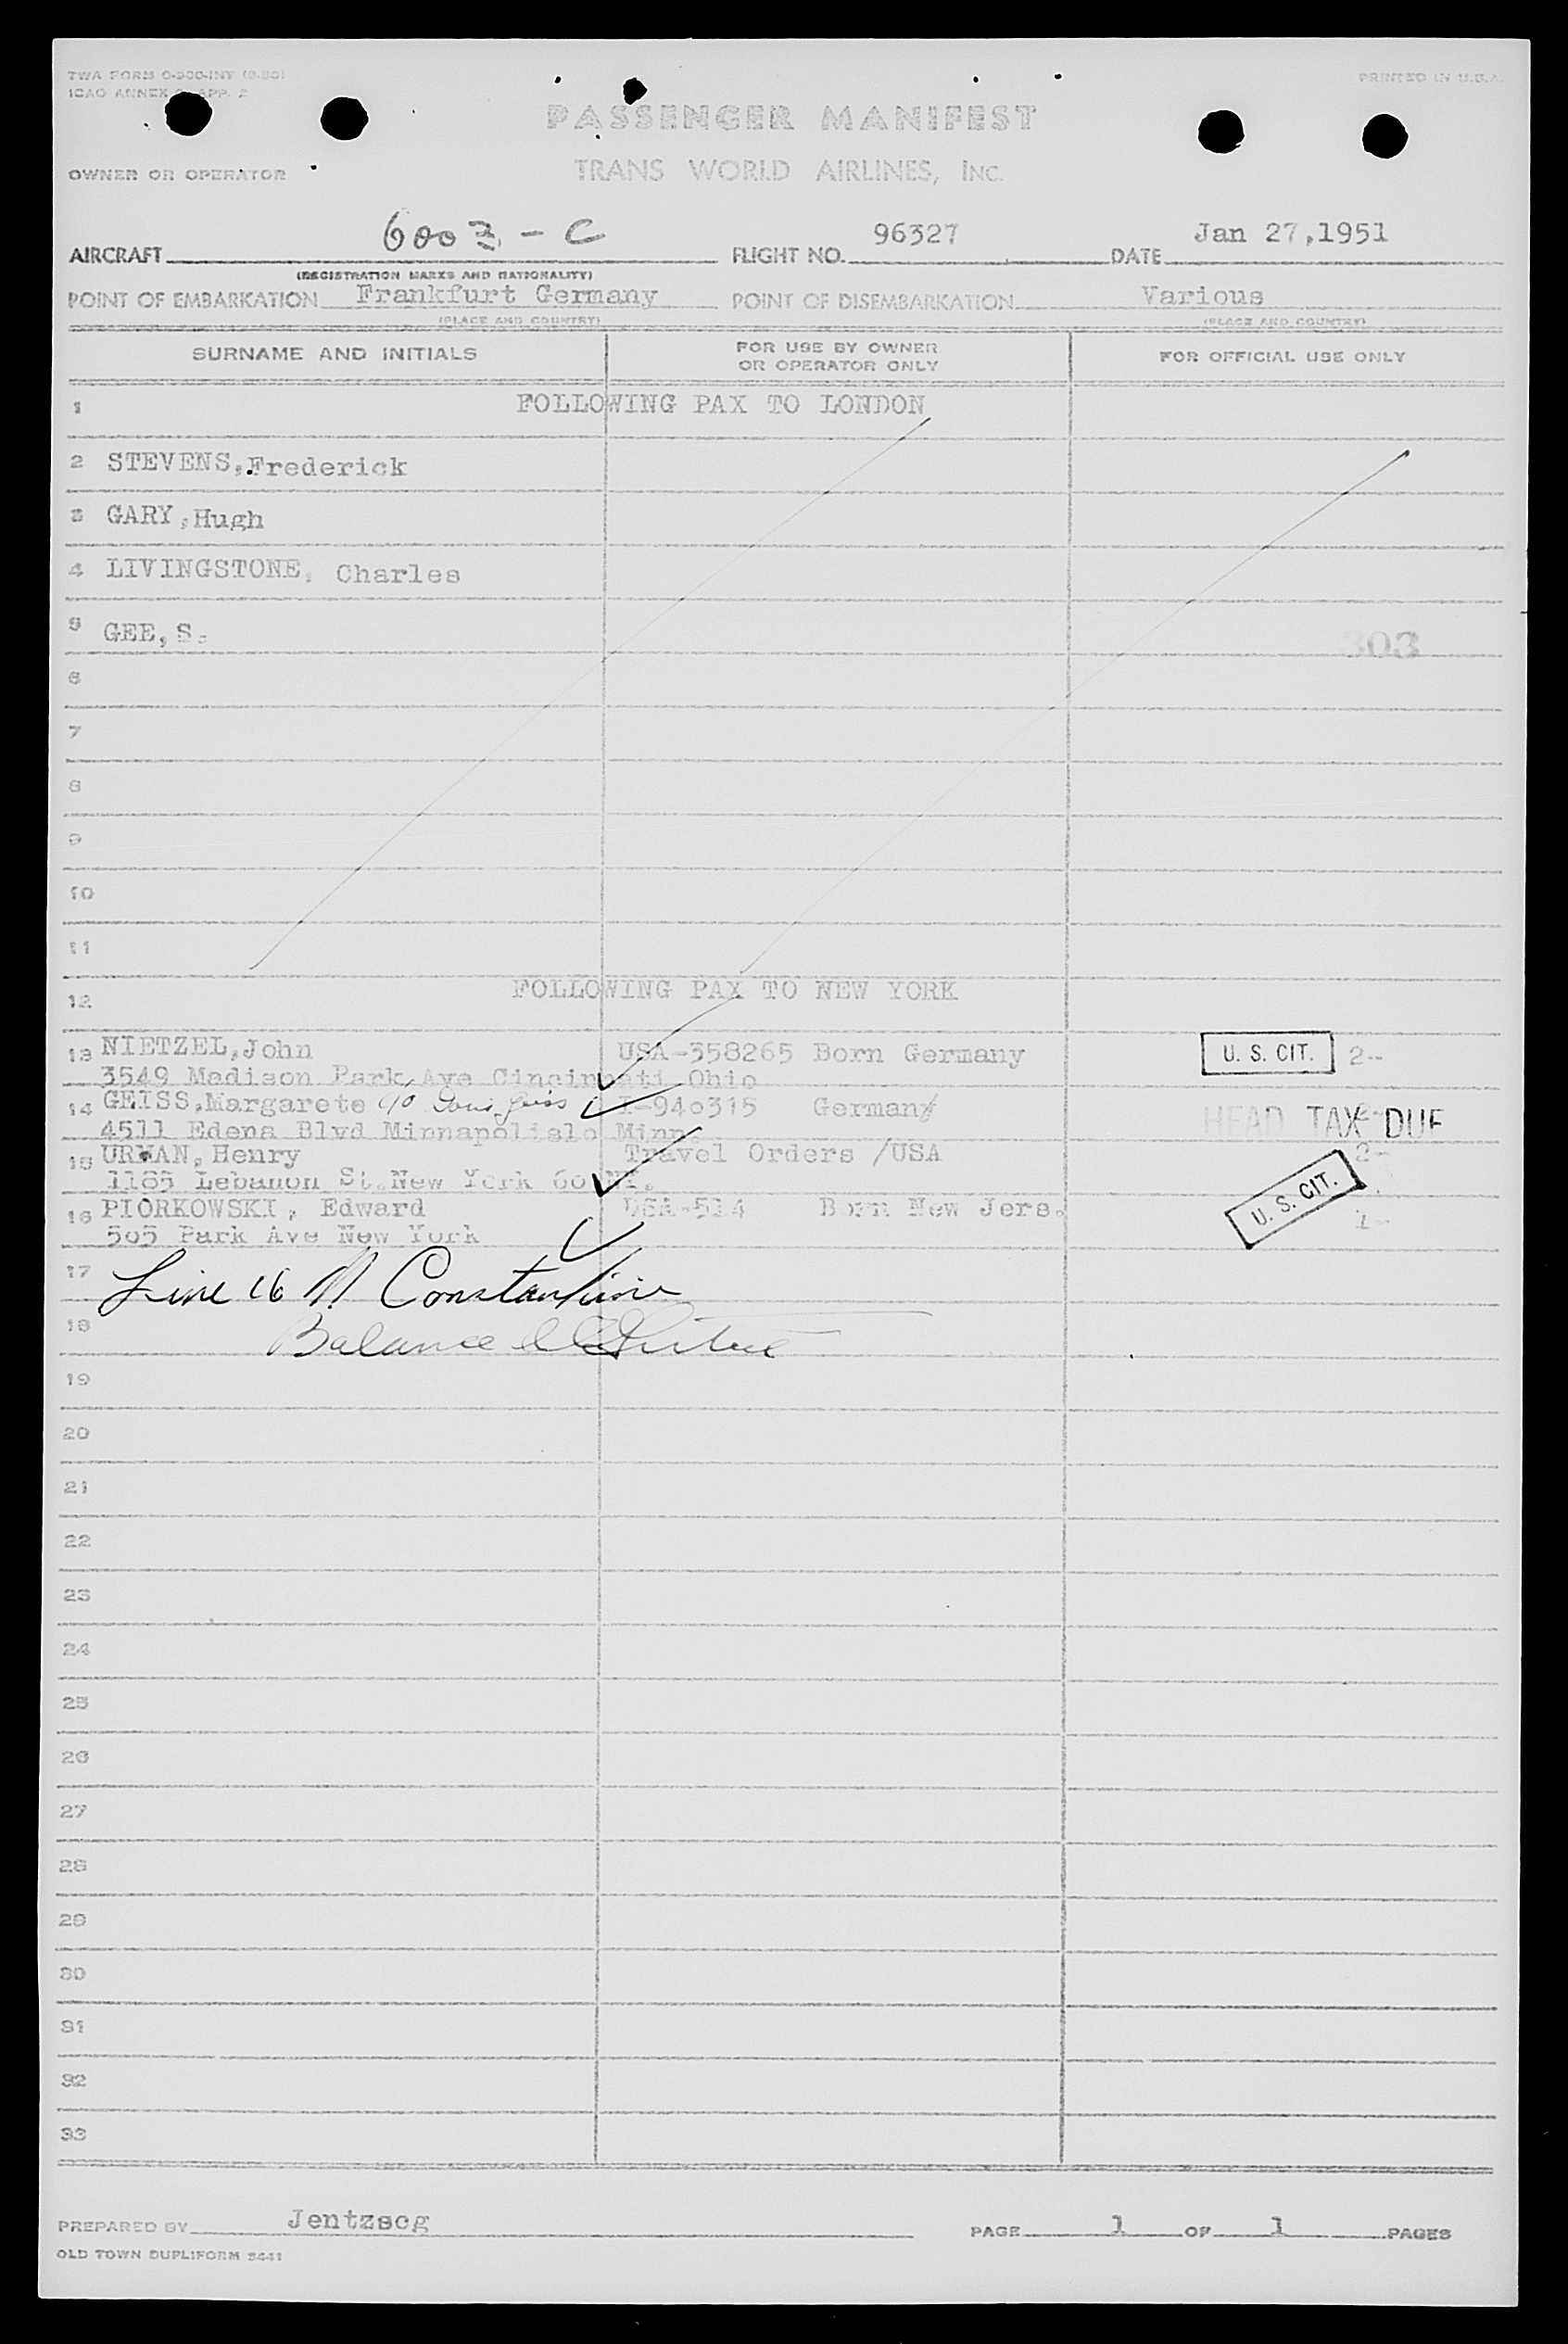 TWA FORM O-300-INT (9-50) PRINTED IN U.S.A.
ICAO ANNEX 9, APP. 2
PASSENGER MANIFEST
OWNER OR OPERATOR TRANS WORLD AIRLINES, INC.
AIRCRAFT 6003-C FLIGHT NO. 96327 DATE Jan 27,1951
(REGISTRATION MARKS AND NATIONALITY)
POINT OF EMBARKATION Frankfurt Germany POINT OF DISEMBARKATION Various
(PLACE AND COUNTRY) (PLACE AND COUNTRY)
SURNAME AND INITIALS FOR USE BY OWNER OR OPERATOR ONLY FOR OFFICIAL USE ONLY
1 FOLLOWING PAX TO LONDON
2 STEVENS,Frederick
3 GARY,Hugh
4 LIVINGSTONE, Charles
5 GEE,S.
303
6
7
8
9
10
11
12 FOLLOWING PAX TO NEW YORK
13 NIETZEL,John USA-358265 Born Germany U. S. CIT. 2-
3549 Madison Park Ave Cincinnati Ohio
14 GEISS,Margarete c/o Geiss I-940315 Germany HEAD TAX DUE
4511 Edena Blvd Minnapolislo Minn.
15 URMAN, Henry Travel Orders /USA 2-
1185 Lebanon St.New York 60 NY. U. S. CIT.
16 PIORKOWSKI, Edward USA-514 Born New Jers. 1-
505 Park Ave New York
17 Line 16 Constantine
18 Balance
19
20
21
22
23
24
25
26
27
28
29
30
31
32
33
PREPARED BY Jentzscg PAGE 1 OF 1 PAGES
OLD TOWN DUPLIFORM 5441